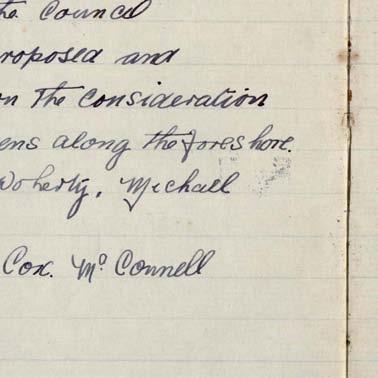 the Council
roposed and
on the consideration
ens along the foreshore.
Doherty, Michael
Cox. McConnell